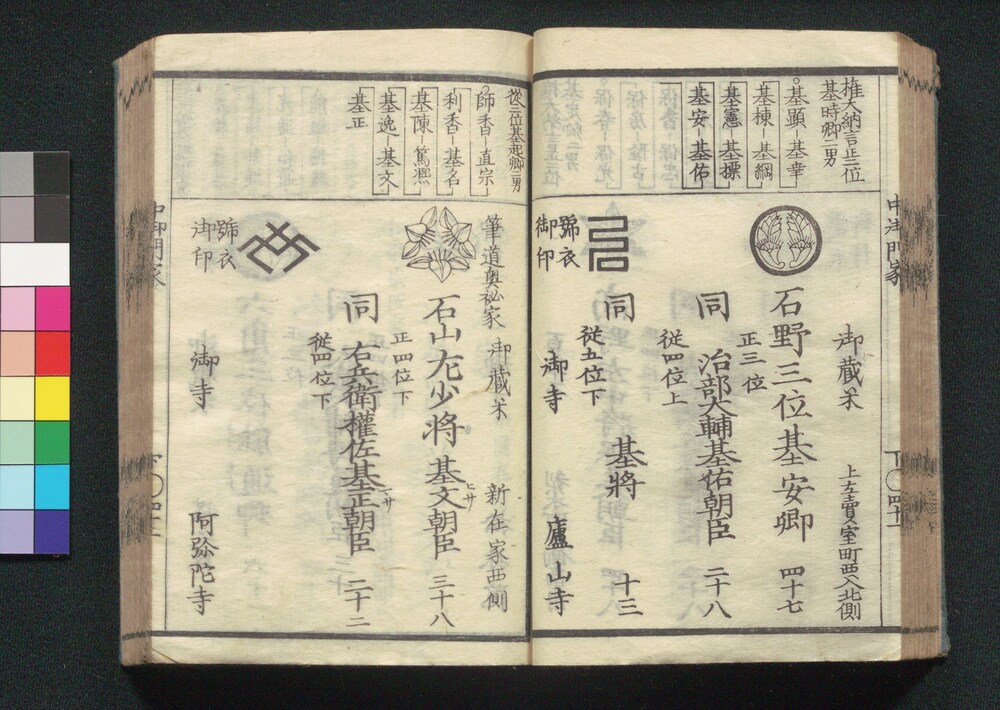 権大納言正三位
基時卿二男
基顕－基幸
基棟－基綱
基憲－基標
基安－基佑
御蔵米
上立賣室町西入北側
石野三位基安卿 四十七
正三位
同 治部大輔基佑朝臣 二十八
従四位上
同 基将 十三
従五位下
雑衣
御印
御寺 廬山寺
従三位基起卿二男
師香－直宗
利香－基名
基陳－篤熙
基逸－基文
基正
筆道奥秘家 御蔵米 新在家西側
石山左少将基文朝臣 三十八
ヒサ
正四位下
同 右兵衛權佐基正朝臣 二十二
ナサ
従四位下
雑衣
御印
御寺 阿弥陀寺
中御門家